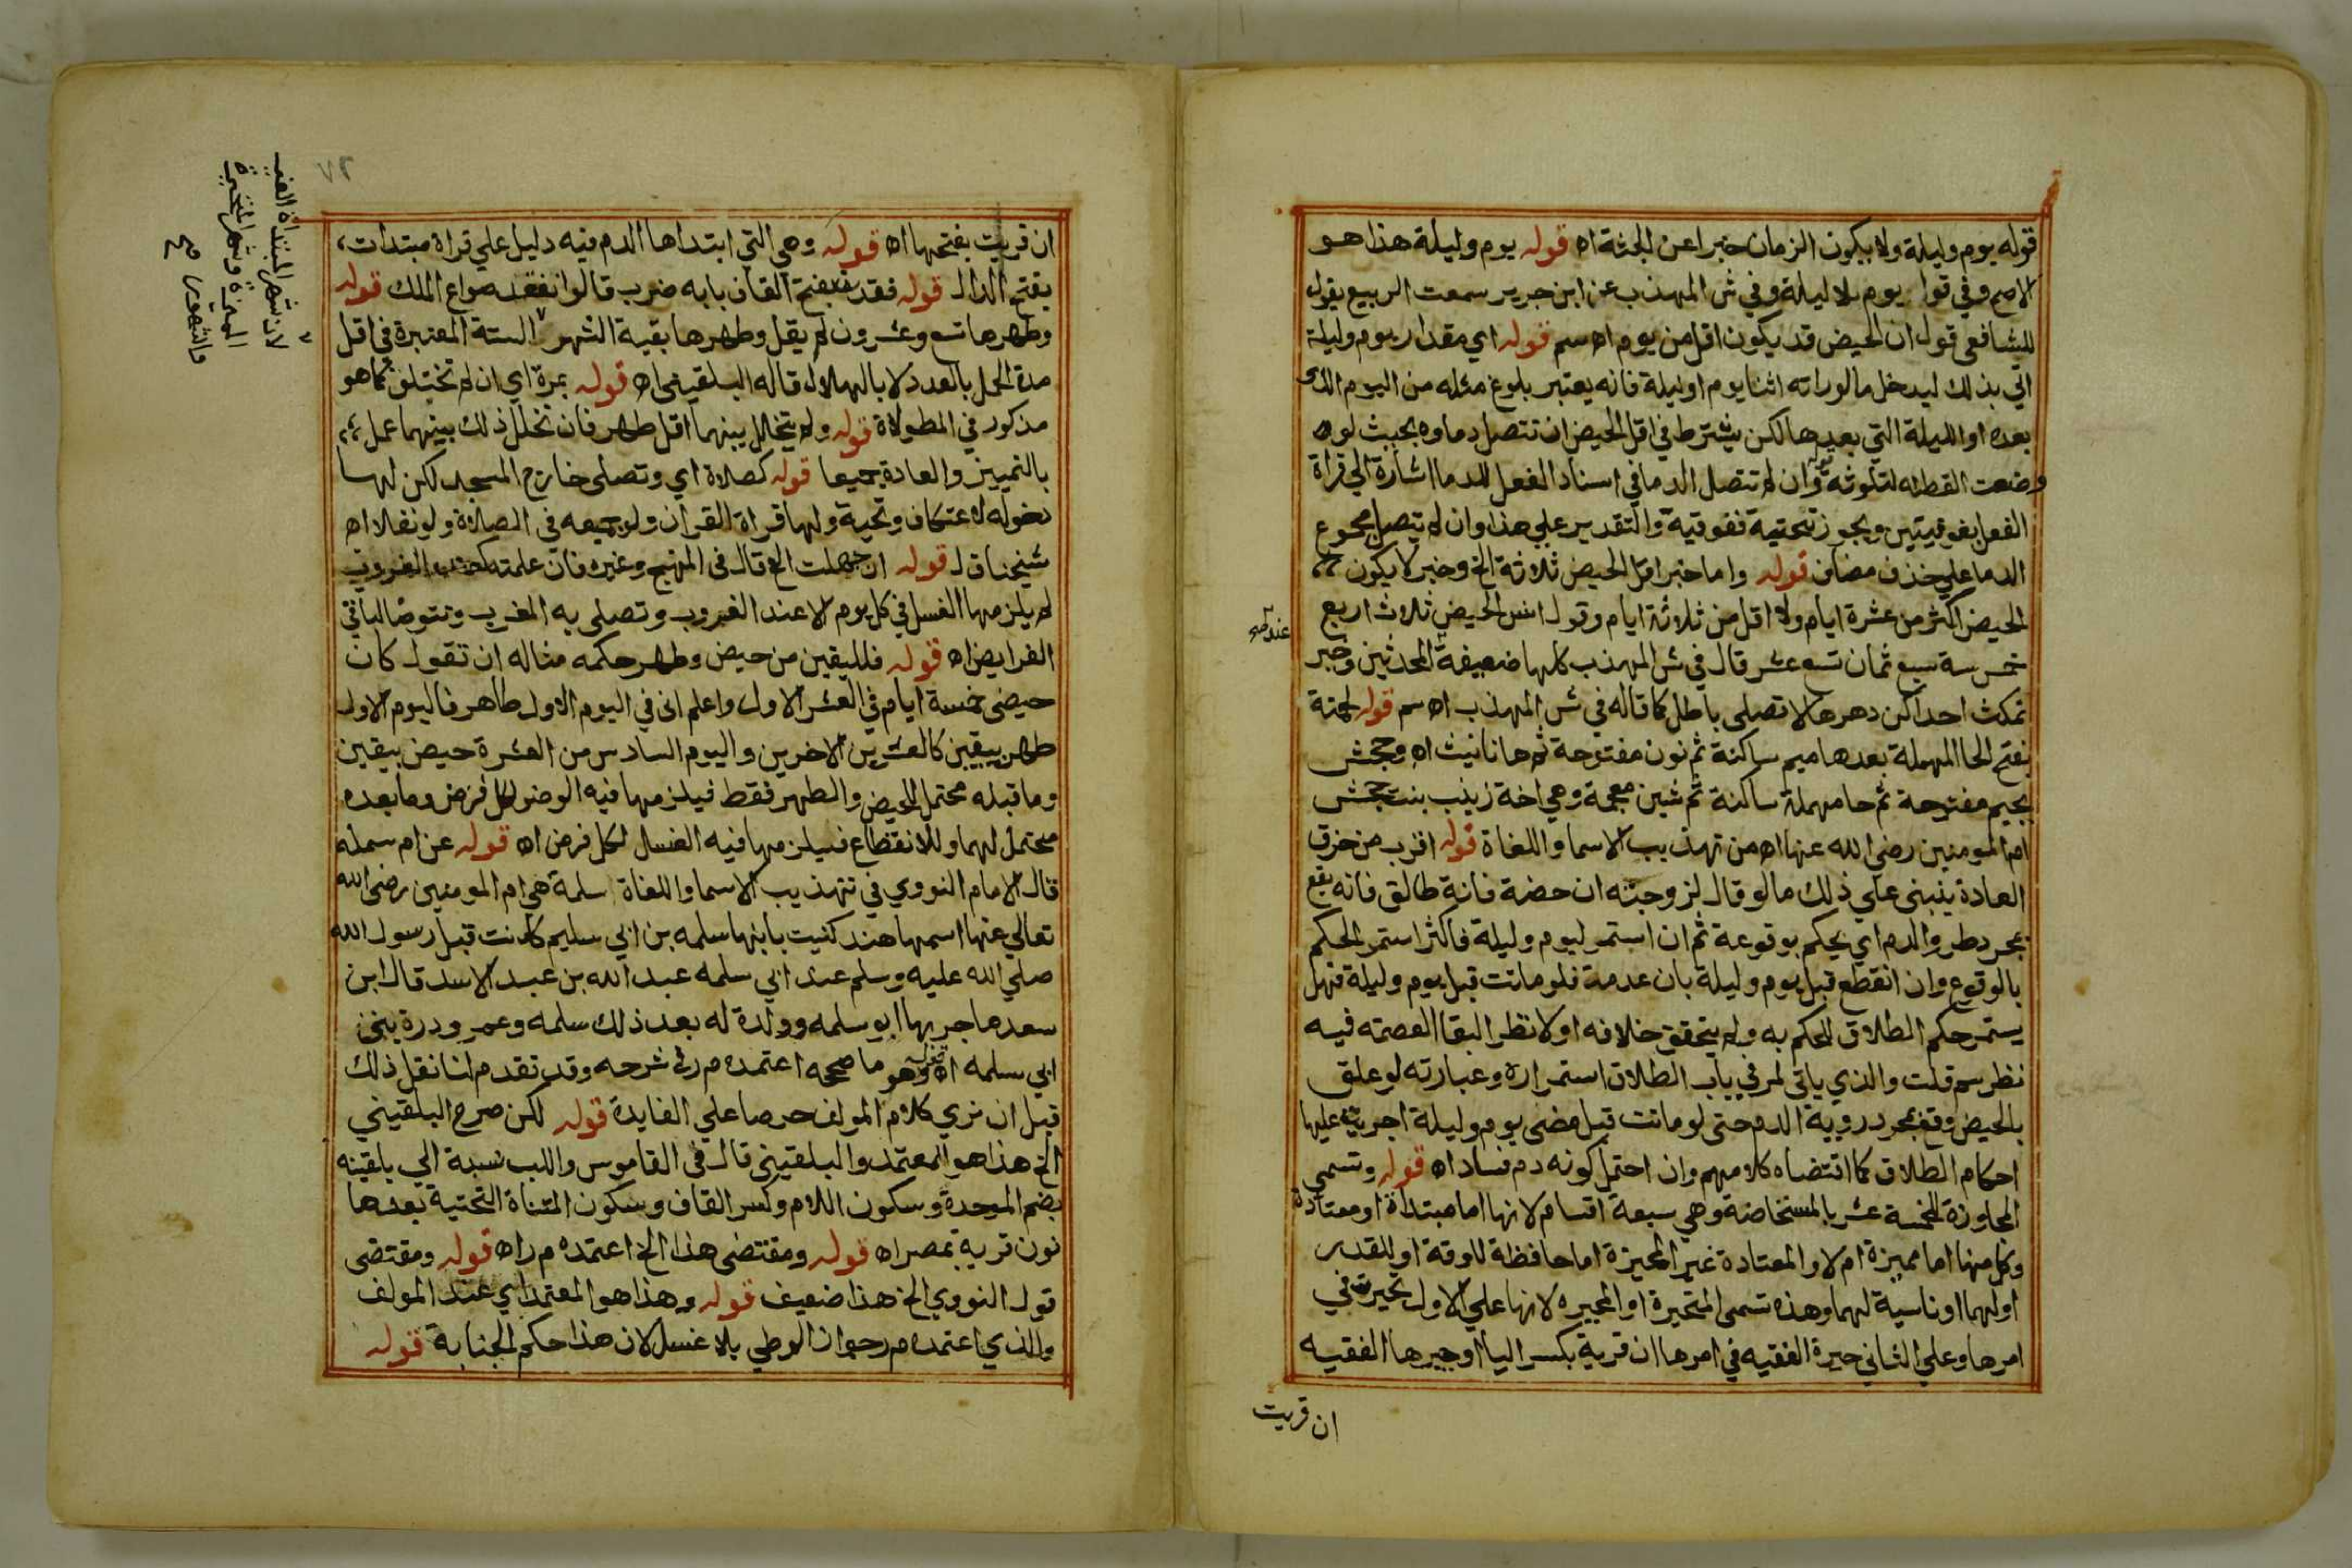 قوله يوم وليلة ولا يكون الزمان خبرا عن الجثة اه قوله يوم وليلة هذا هو
الاصح وفي قول يوم بلا ليلة وفي ش المهذب عن ابن جرير سمعت الربيع يقول
للشافعي قول ان الحيض قد يكون اقل من يوم اه سم قوله اي مقدار يوم وليلة
اتي بذلك ليدخل ما لو راته اثنا يوم او ليلة فانه يعتبر بلوغ مثله من اليوم الذي
بعده او الليلة التي بعدها لكن يشترط في اقل الحيض ان تتصل دماوه بحيث لو
وضعت القطنه لتلوثة وان لم تتصل الدما في اسناد الفعل للدما اشارة الي قراة
الفعل بفوقيتين ويجوز تحتية ففوقية والتقدير علي هذا وان لم يتصل مجموع
الدما علي حذف مضاف قوله واما خبر اقل الحيض ثلاثة الخ وخبر لا يكون
الحيض اكثر من عشرة ايام ولا اقل من ثلاثة ايام وقول انس الحيض ثلاث اربع
خمس ستة سبع ثمان تسع عشر قال في ش المهذب كلها ضعيفة المحدثين وخبر
تمكث احداكن دهرها لا تصلي باطل كما قاله في ش المهذب اه سم قوله لحمنة
بفتح الحا المهملة بعدها ميم ساكنة ثم نون مفتوحة ثم ها تانيث اه وجحش
بجيم مفتوحة ثم حا مهملة ساكنة ثم شين معجمة وهي اخة زينب بنت جحش
ام المومنين رضي الله عنها اه من تهذيب الاسما واللغاة قوله اقرب من خرق
العادة ينبني علي ذلك ما لو قال لزوجته ان حضة فانة طالق فانه يقع
بمجرد طرو الدم اي يحكم بوقوعة ثم ان استمر ليوم وليلة فاكثر استمر الحكم
بالوقوع وان انقطع قبل يوم وليلة بان عدمه فلو ماتت قبل يوم وليلة فهل
يستمر حكم الطلاق للحكم به ولم يتحقق خلافه او لا نظر البقا العصمته فيه
نظر سم قلت والذي ياتي لمر في باب الطلاق استمراره وعبارته لو علق
بالحيض وقع بمجرد روية الدم حتي لو ماتت قبل مضي يوم وليلة اجريت عليها
احكام الطلاق كما اقتضاه كلامهم وان احتمل كونه دم فساد اه قوله وتسمي
المجاوزة للخمسة عشر بالمستحاضة وهي سبعة اقسام لانها اما مبتداة او معتادة
وكل منها اما مميزة ام لا والمعتادة غير المميزة اما حافظة للوقة او للقدر
او لهما او ناسية لهما وهذه تسمي المتحيرة او المحيره لانها علي الاول تحيرت في
امرها وعلي الثاني حيرة الفقيه في امرها ان قرية بكسر اليا او حيرها الفقيه
ان قريت
ان قريت بفتحها اه قوله وهي التي ابتداها الدم فيه دليل علي قراة مبتدات
بفتح الدال قوله فقدت بفتح القاف بابه ضرب قالوا نفقد صواع الملك قوله
وطهرها تسع وعشرون لم يقل وطهرها بقية الشهر الستة المعتبرة في اقل
مدة الحمل بالعدد لا بالهلال قاله البلقيني اه قوله بمرة اي ان لم تختلف كما هو
مذكور في المطولاة قوله ولم يتخلل بينهما اقل طهر فان تخلل ذلك بينهما عمل
بالتمييز والعادة جميعا قوله كصلاة اي وتصلي خارج المسجد لكن لها
دخوله لاعتكاف وتحية ولها قراة القران ولو جميعه في الصلاة ولو نفلا اه
شيخنا ق ل قوله ان جهلت الخ قال في المنهج وغيره فان علمته كعند الغروب
لم يلزمها الغسل في كل يوم الا عند الغروب وتصلي به المغرب وتتوضا لباقي
الفرايض اه قوله فلليقين من حيض وطهر حكمه مثاله ان تقول كان
حيضي خمسة ايام في العشر الاول واعلم اني في اليوم الاول طاهر فاليوم الاول
طهر بيقين كالعشرين الاخرين واليوم السادس من العشرة حيض بيقين
وما قبله محتمل للحيض والطهر فقط فيلزمها فيه الوضو لكل فرض وما بعده
محتمل لهما وللانقطاع فيلزمها فيه الغسل لكل فرض اه قوله عن ام سملة
قال الامام النووي في تهذيب الاسما واللغاة سلمة هي ام المومنين رضي الله
تعالي عنها اسمها هند كنيت بابنها سلمه بن ابي سليم كانت قبل رسول الله
صلي الله عليه وسلم عند ابي سلمه عبد الله بن عبد الاسد قال ابن
سعد هاجر بها ابو سلمه وولدة له بعد ذلك سلمه وعمر ودرة بنتي
ابي سلمه اه قوله وهو ما صححه اعتمده م ر في شرحه وقد تقدم لنا نقل ذلك
قبل ان نري كلام المولف حرصا علي الفايدة قوله لكن صرح البلقيني
الخ هذا هو المعتمد والبلقيني قال في القاموس واللب نسبة الي بلقينه
بضم الموحدة وسكون اللام وكسر القاف وسكون المثناة التحتية بعدها
نون قرية بمصر اه قوله ومقتضي هذا الخ اعتمده م ر اه قوله ومقتضي
قول النووي الخ هذا ضعيف قوله وهذا هو المعتمد اي عند المولف
والذي اعتمده م ر جواز الوطي بلا غسل لان هذا حكم الجنابة قوله